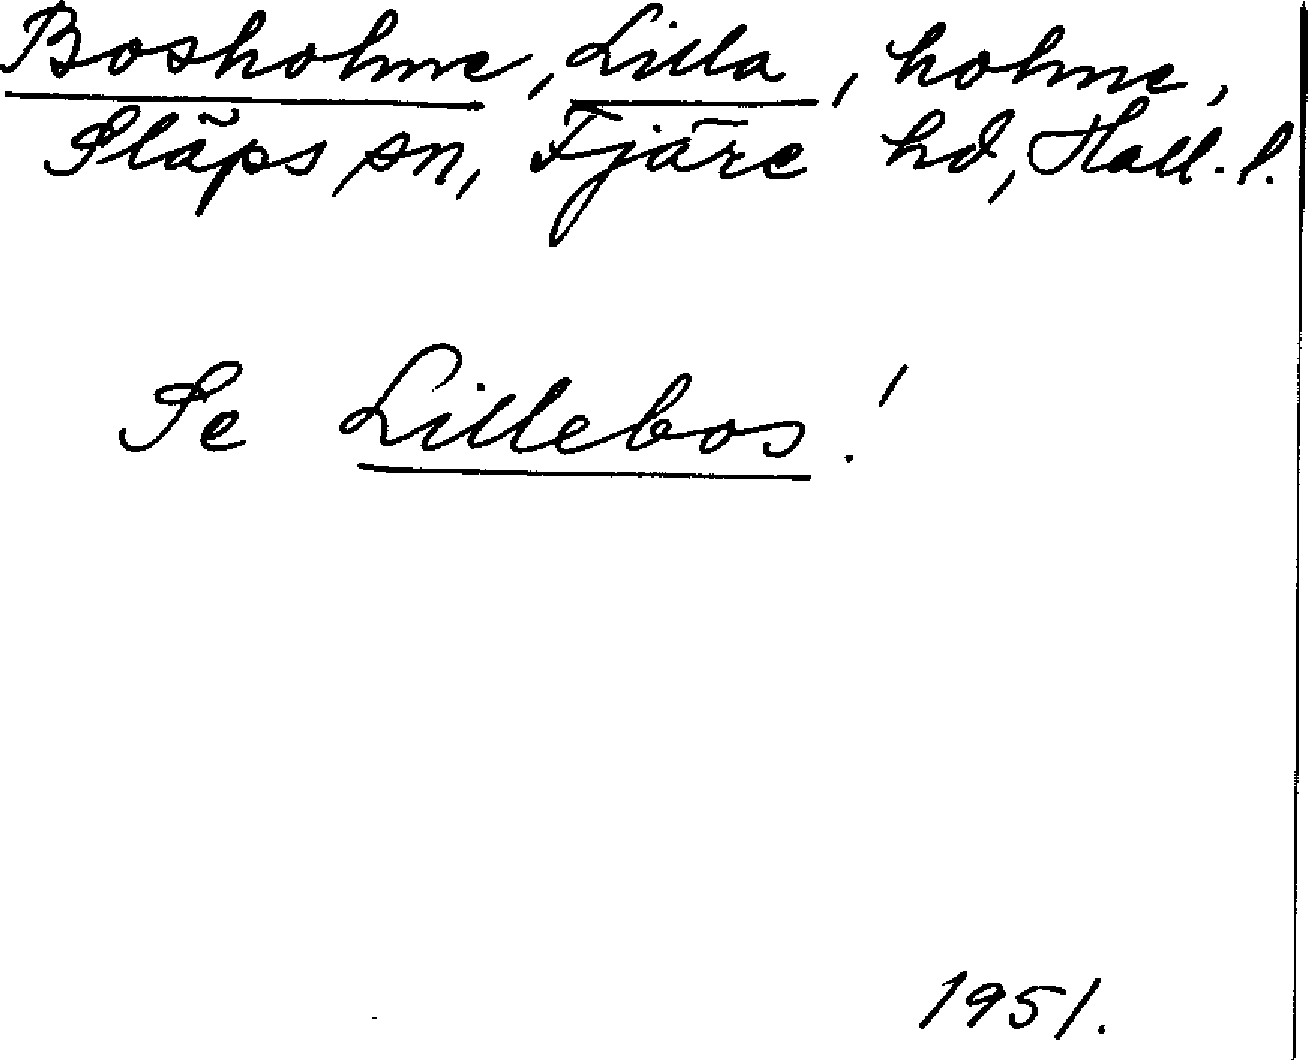 Bosholme, Lilla, holme,
Släps sn, Fjäre hd, Hall. l.
Se Lillebos!
1951.